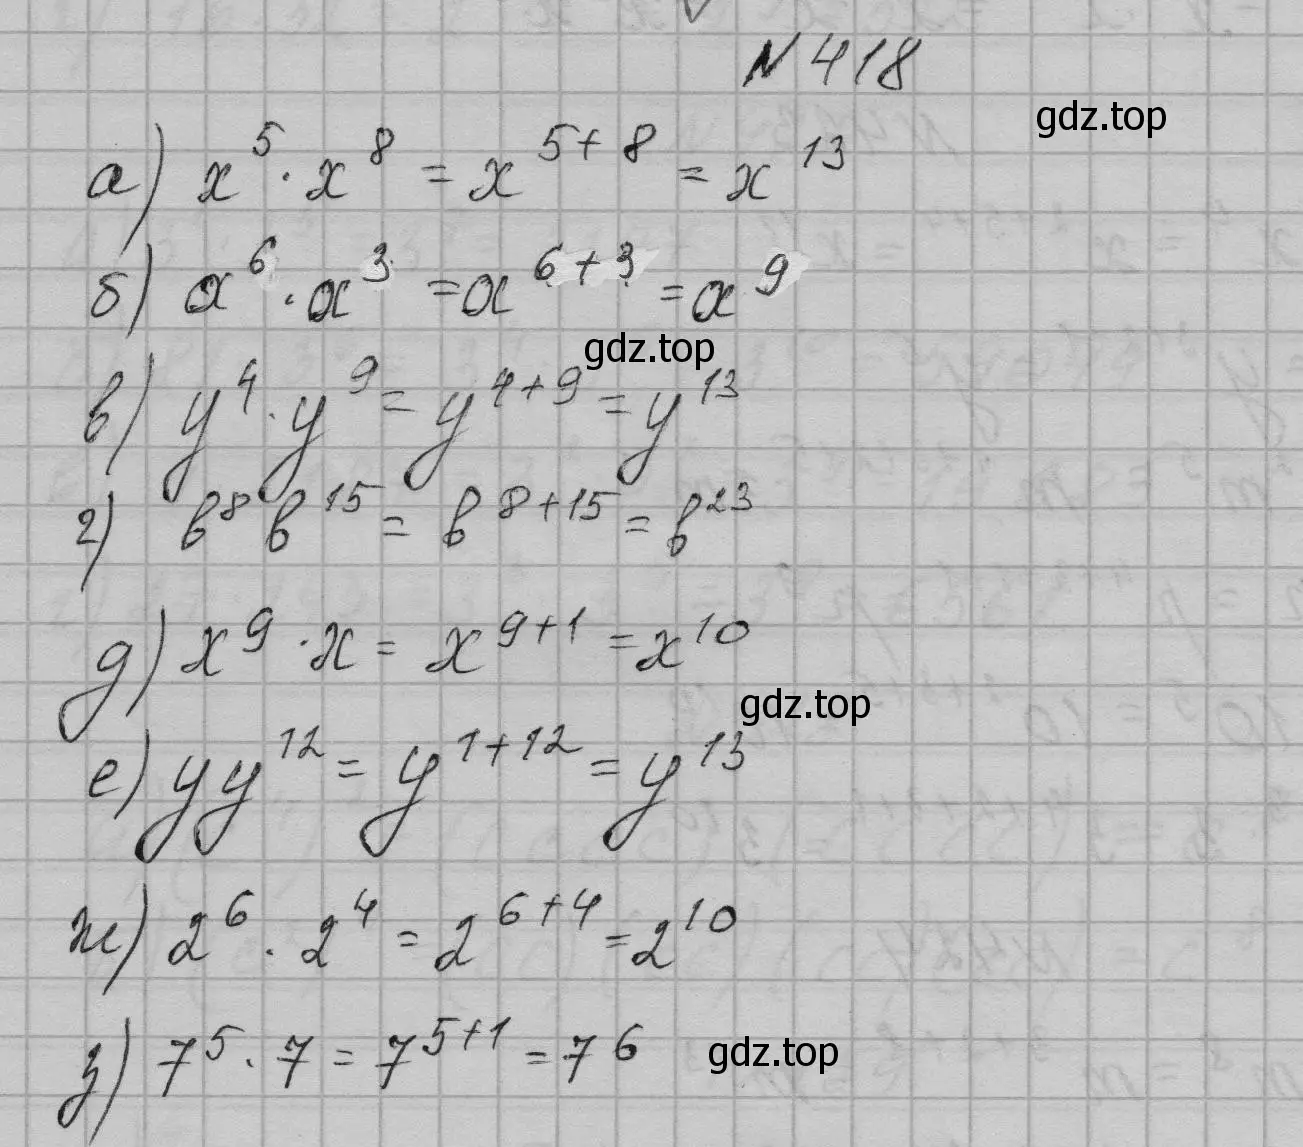 N 418
gdz.top
а) x⁵ · x⁸ = x⁵⁺⁸ = x¹³
б) a⁶ · a³ = a⁶⁺³ = a⁹
gdz.top
в) y⁴ · y⁹ = y⁴⁺⁹ = y¹³
г) b⁸ b¹⁵ = b⁸⁺¹⁵ = b²³
д) x⁹ · x = x⁹⁺¹ = x¹⁰
gdz.top
е) yy¹² = y¹⁺¹² = y¹³
ж) 2⁶ · 2⁴ = 2⁶⁺⁴ = 2¹⁰
з) 7⁵ · 7 = 7⁵⁺¹ = 7⁶
gdz.top